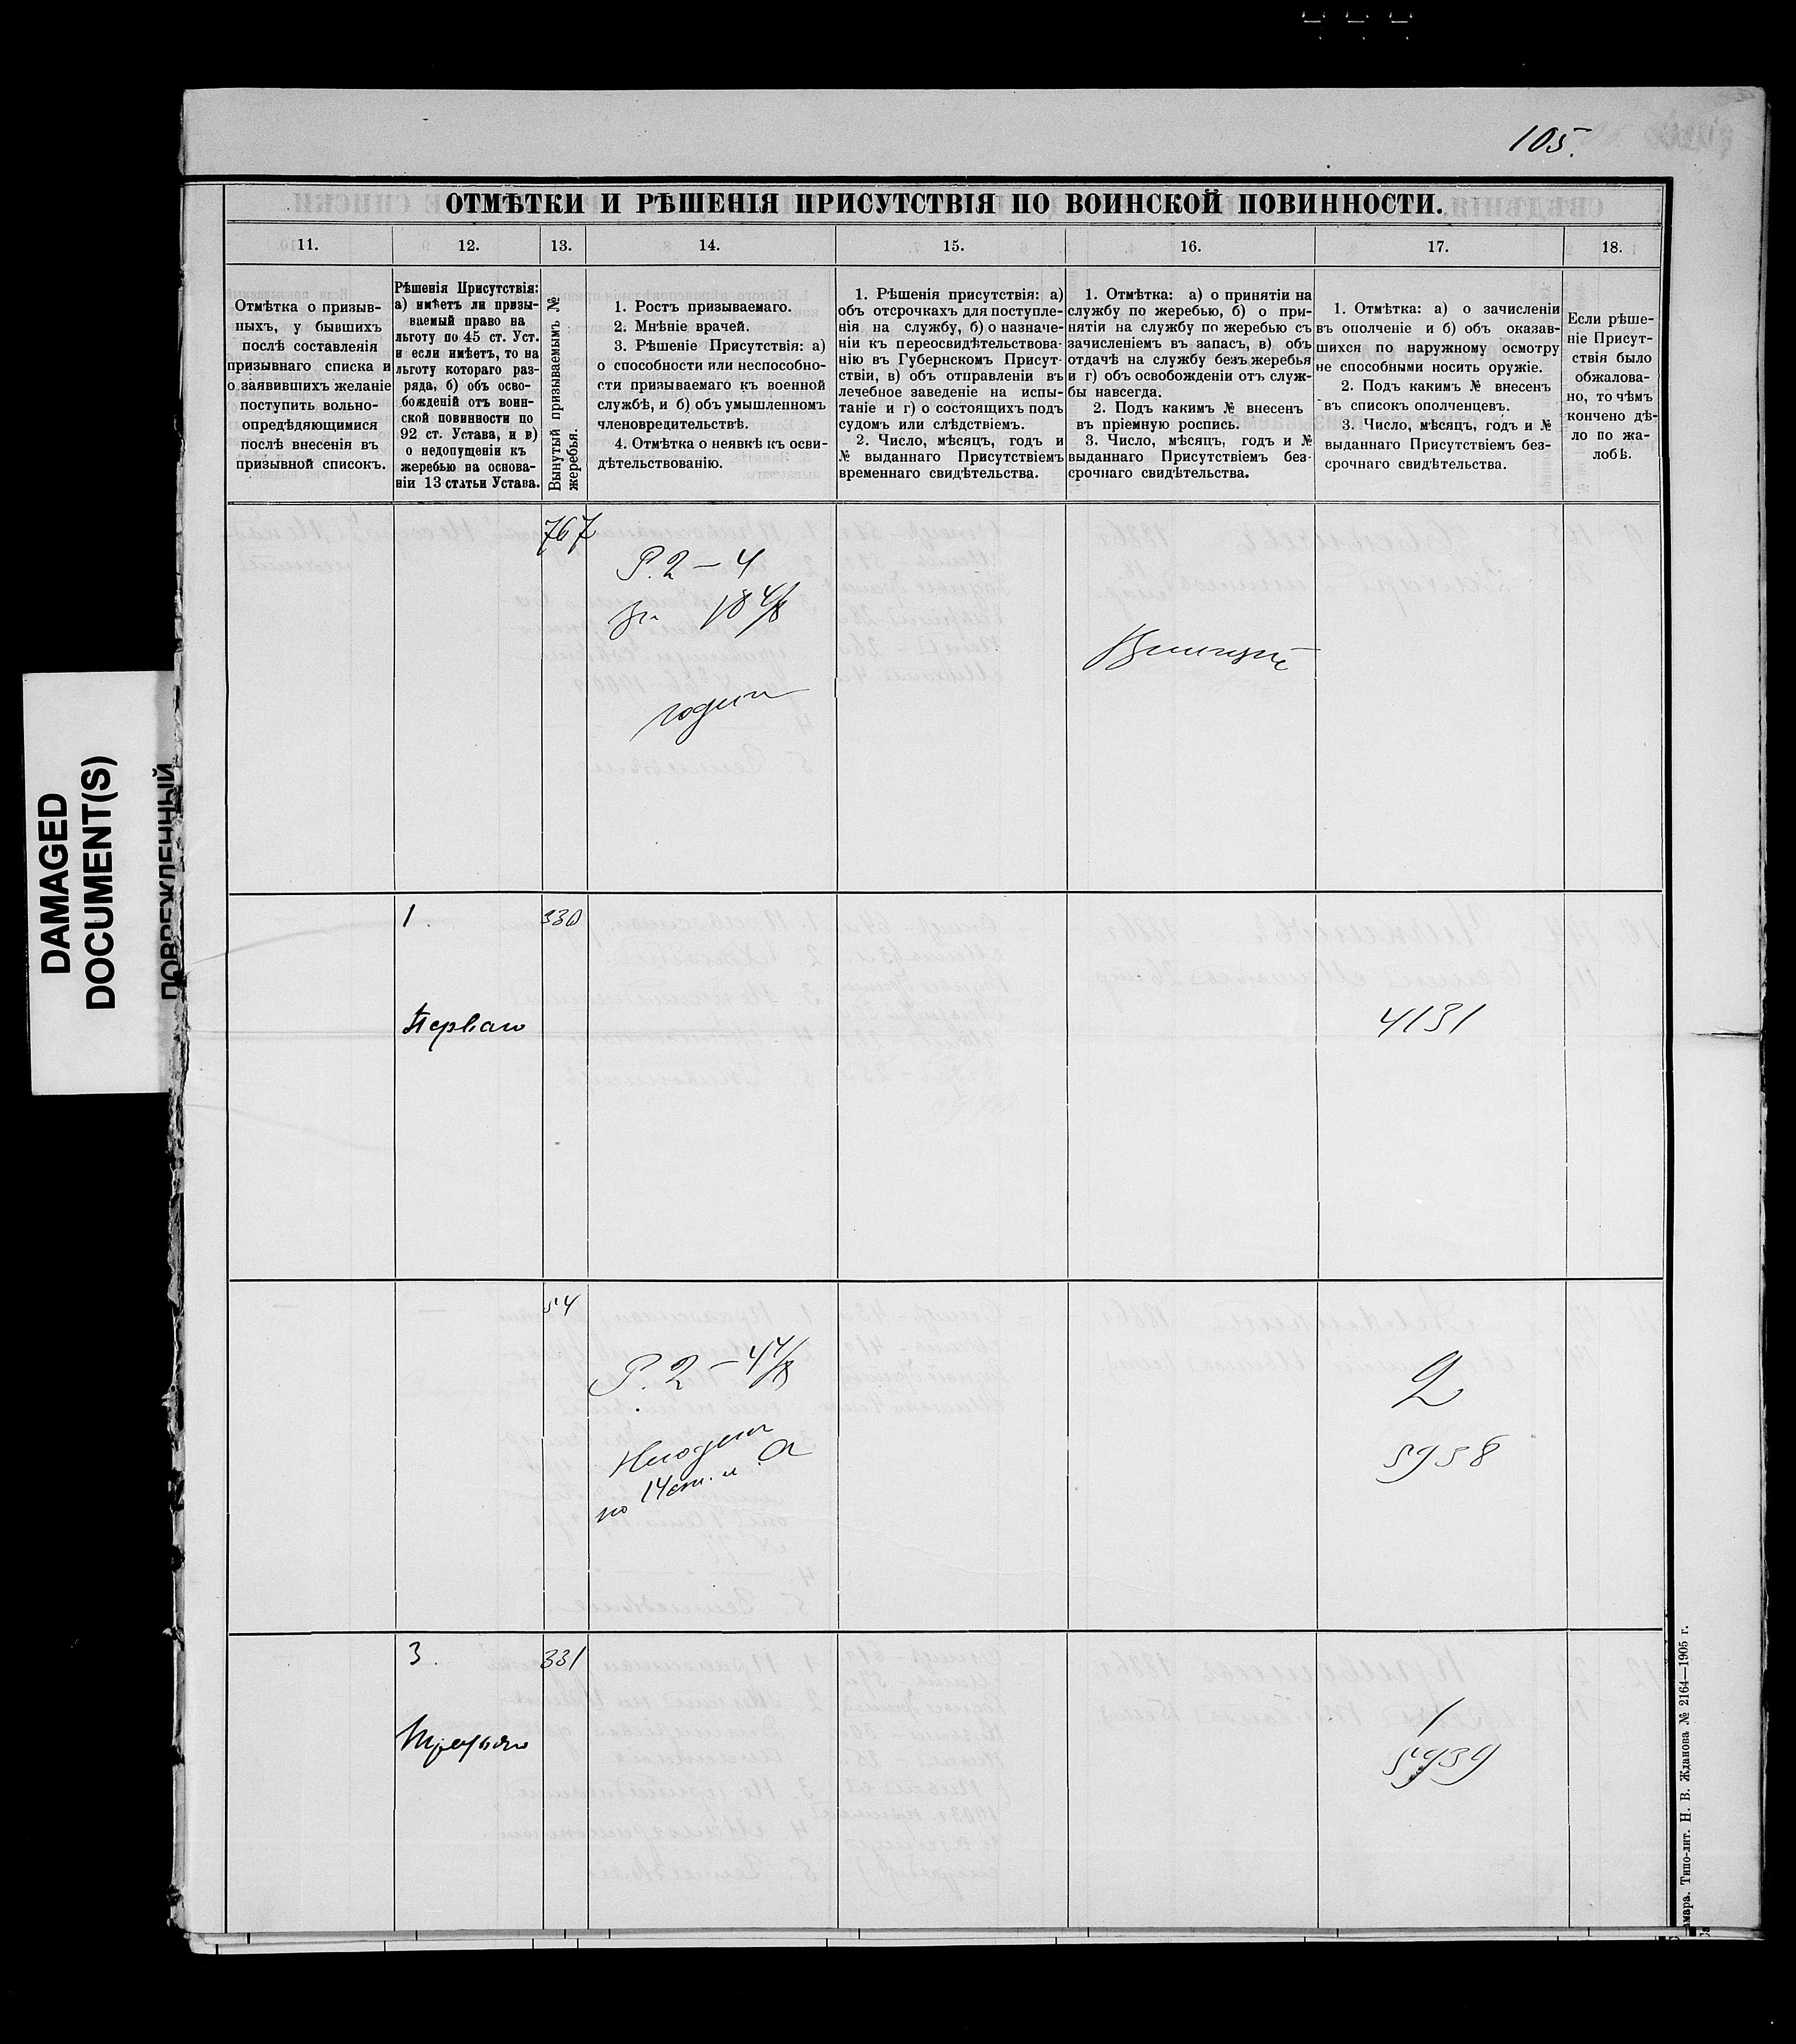 105.
ОТМѢТКИ И РѢШЕНІЯ ПРИСУТСТВІЯ ПО ВОИНСКОЙ ПОВИННОСТИ.
11. 12. 13. 14. 15. 16. 17. 18.
Отмѣтка о призыв-
ныхъ, у бывшихъ
послѣ составленія
призывнаго списка и
о заявившихъ желаніе
поступить вольно-
опредѣдяющимися
послѣ внесенія въ
призывной списокъ.
Рѣшенія Присутствія:
а) имѣетъ ли призы-
ваемый право на
льготу по 45 ст. Уст.
и если имѣетъ, то на
льготу котораго раз-
ряда, б) объ осво-
божденій отъ воин-
ской повинности по
92 ст. Устава, и в)
о недопущеніи къ
жеребью на основа-
ніи 13 статьи Устава.
Вынутый призываемымъ №
жеребья.
1. Ростъ призываемаго.
2. Мнѣніе врачей.
3. Рѣшеніе Присутствія: а)
о способности или неспособно-
сти призываемаго къ военной
службѣ, и б) объ умышленномъ
членовредительствѣ.
4. Отмѣтка о неявкѣ къ осви-
дѣтельствованію.
1. Рѣшенія присутствія: а)
объ отсрочкахъ для поступле-
нія на службу, б) о назначе-
ніи къ переосвидѣтельствова-
нію въ Губернскомъ Присут-
ствіи, в) объ отправленіи въ
лечебное заведеніе на испы-
таніе и г) о состоящихъ подъ
судомъ или слѣдствіемъ.
2. Число, мѣсяцъ, годъ и
№ выданнаго Присутствіемъ
временнаго свидѣтельства.
1. Отмѣтка: а) о принятіи на
службу по жеребью, б) о при-
нятіи на службу по жеребью съ
зачисленіемъ въ запасъ, в) объ
отдачѣ на службу безъ жеребья
и г) объ освобожденіи отъ служ-
бы навсегда.
2. Подъ какимъ № внесенъ
въ пріемную роспись.
3. Число, мѣсяцъ, годъ и №
выданнаго Присутствіемъ без-
срочнаго свидѣтельства.
1. Отмѣтка: а) о зачисленіи
въ ополченіе и б) объ оказав-
шихся по наружному осмотру
не способными носить оружіе.
2. Подъ какимъ № внесенъ
въ списокъ ополченцевъ.
3. Число, мѣсяцъ, годъ и №
выданнаго Присутствіемъ без-
срочнаго свидѣтельства.
Если рѣше-
ніе Присут-
ствія было
обжалова-
но, то чѣмъ
кончено дѣ-
ло по жа-
лобѣ.
767
Р. 2 – 4
18 4/8
годен
1.
330
Перваго
4131
54
Р. 2 – 4 4/8
2
по 14 ст. и
5958
3.
331
Третьяго
1
5939
Типо-лит. Н. В. Жданова № 2164—1905 г.
DAMAGED
DOCUMENT(S)
ПОВРЕЖДЕННЫЙ